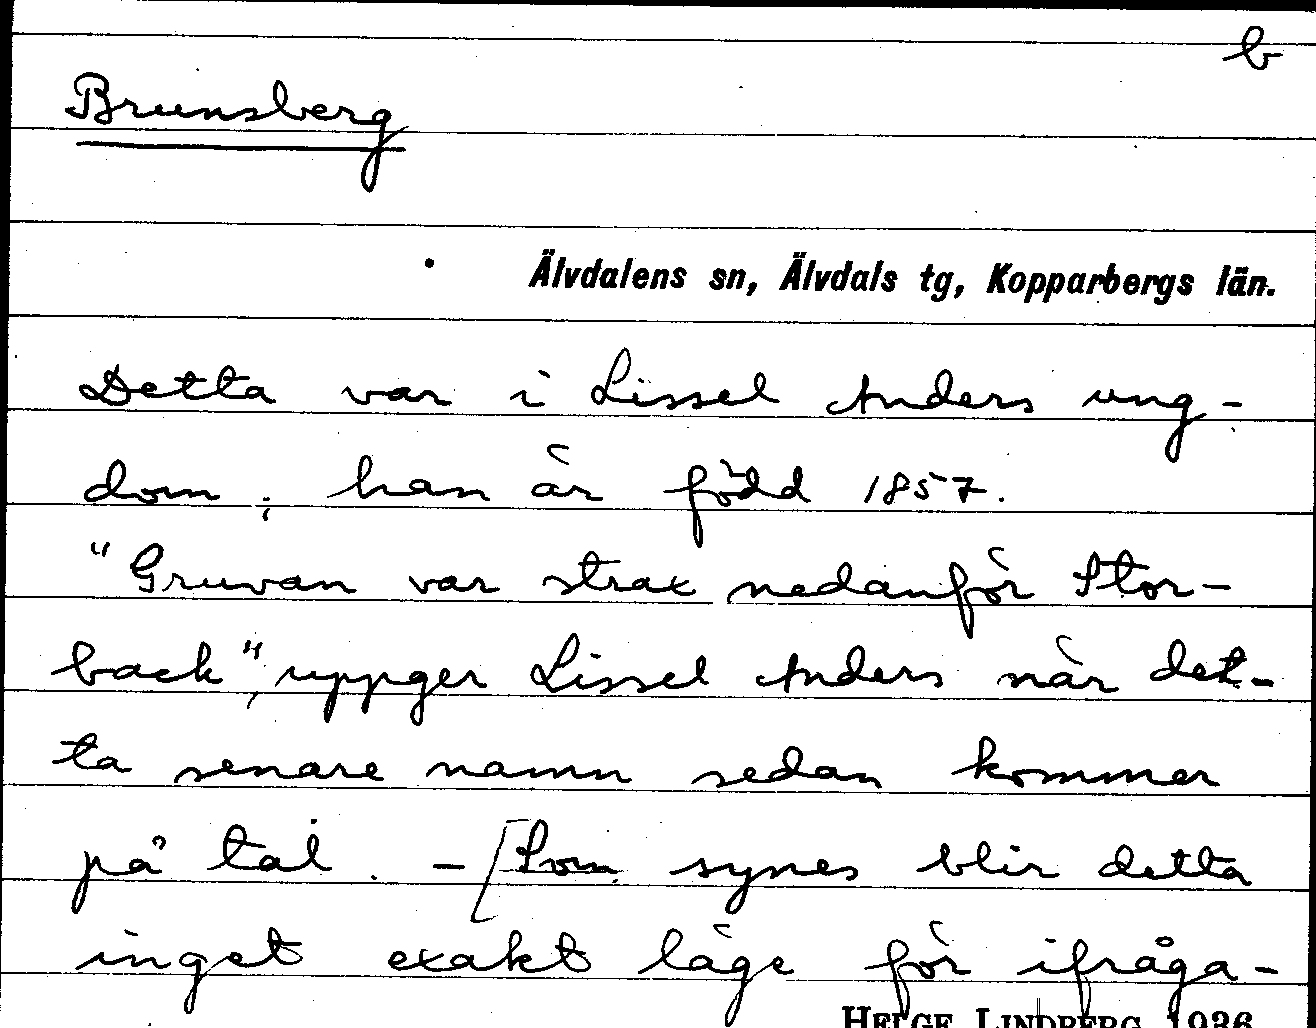 b
Brunsberg
Älvdalens sn, Älvdals tg, Kopparbergs län.
Detta var i Lissel Anders ung-
dom; han är född 1857.
"Gruvan var strax nedanför Stor-
back", uppger Lissel Anders när det-
ta senare namn sedan kommer
på tal. - [Som synes blir detta
inget exakt läge för ifråga-
HELGE LINDBERG 1936